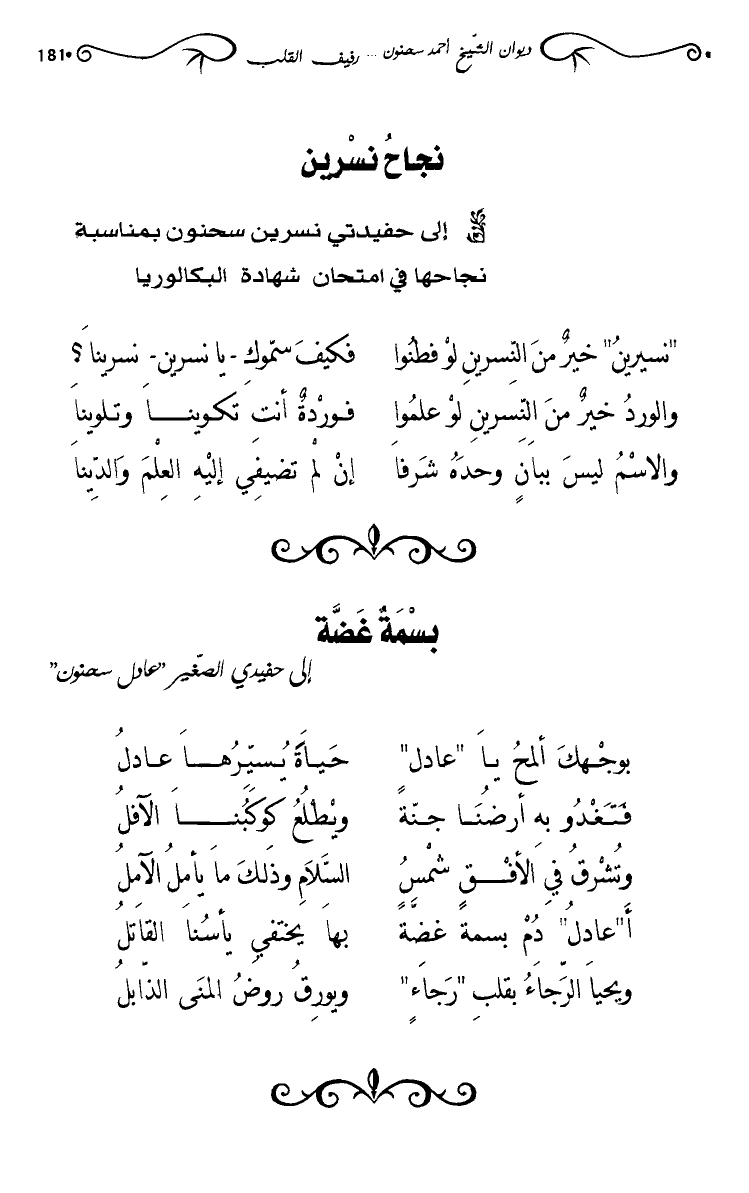 ديوان الشّيخ أحمد سحنون ... رفيف القلب 181
نجاحُ نسْرين
إلى حفيدتي نسرين سحنون بمناسبة
نجاحها في امتحان شهادة البكالوريا
"نسيرينُ" خيرٌ منَ النّسرينِ لوْ فطنُوا فكيفَ سمّوك -يا نسرين- نسرينا ؟
والوردُ خيرٌ منَ النّسرينِ لوْ علمُوا فوردْةٌ أنتِ تكوينـــا وتلوينا
والاسْمُ ليسَ ببانٍ وحدَهُ شرَفا إنْ لمْ تضيفِي إليْهِ العِلْمَ وَالدِّينا
بسْمَةٌ غَضَّة
إلى حفيدي الصّغير "عادل سحنون"
بوجْهكَ ألمحُ يا "عادل" حَياةً يُسيّرُهــا عادلُ
فَتَغْدُو بهِ أرضُنَا جنّةً ويطْلعُ كوكبُنـــا الآفلُ
وتُشْرقُ في الأفْــقِ شمْسُ السَّلاَمِ وذَلكَ ما يأملُ الآملُ
أَ"عادلُ" دُمْ بسمةً غضَّةً بها يختفي يأسُنا القاتلُ
ويحيا الرّجاءُ بقلبِ "رَجاءٍ" ويورقُ روضُ المنَى الذّابلُ